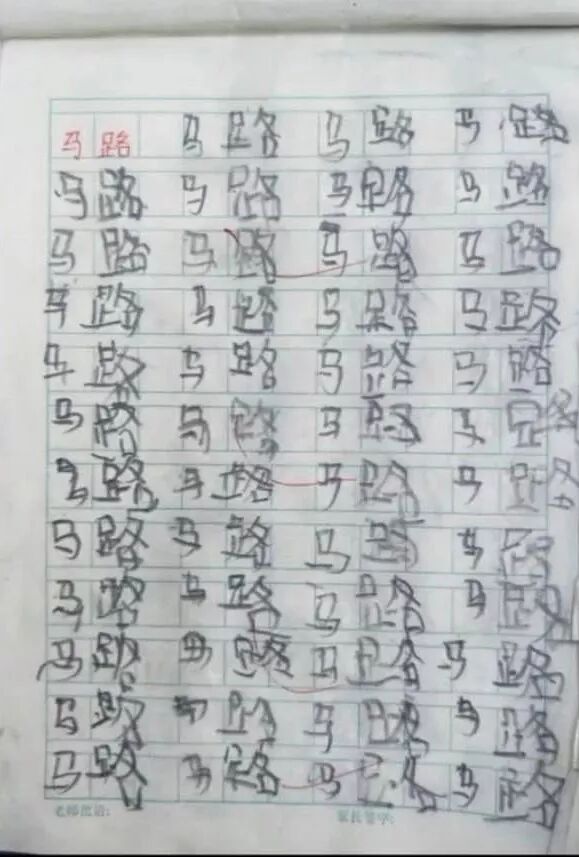 马路 马路 马路 马路
马路 马路 马路 马路
马路 马路 马路 马路
马路 马路 马路 马路
马路 马路 马路 马路
马路 马路 马路 马路
马路 马路 马路 马路
马路 马路 马路 马路
马路 马路 马路 马路
马路 马路 马路 马路
马路 马路 马路 马路
马路 马路 马路 马路
老师批语: 家长签字: